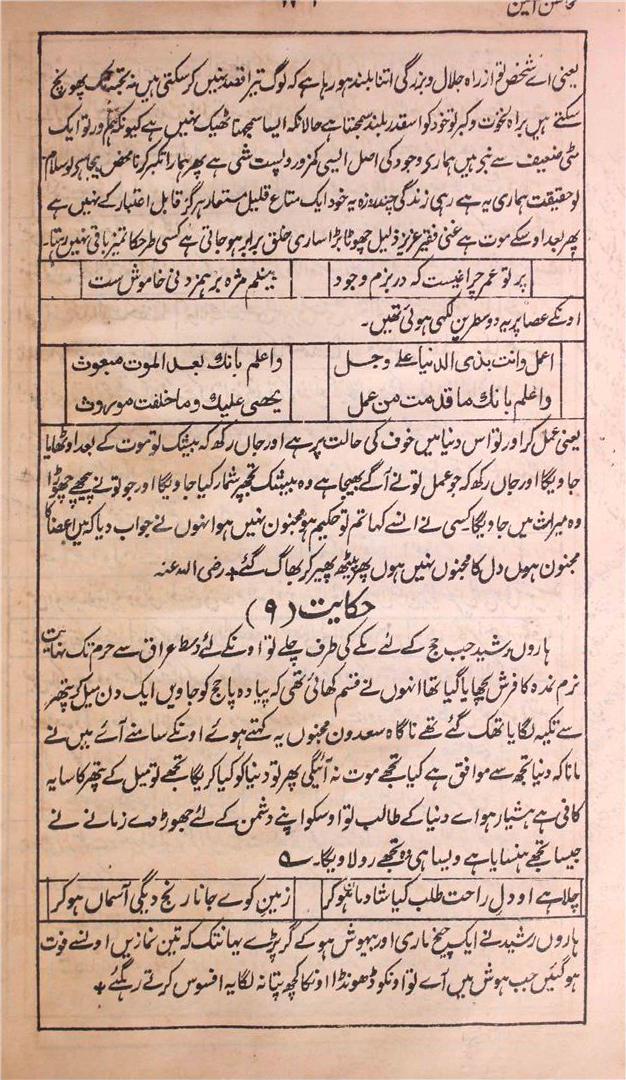 محاسن آمین
یعنی اے شخص تو از راہ جلال و بزرگی اتنا بلند ہو رہا ہے کہ لوگ تیرا قصد نہیں کر سکتی ہیں نہ تجھ تک پہونچ
سکتے ہیں براہ نخوت و کبر تو خود کو اسقدر بلند سمجھتا ہے حالانکہ ایسا سمجھنا ٹھیک نہیں ہے کیونکہ ہم اور تو ایک
مٹی ضعیف سے بنے ہیں ہماری وجود کی اصل ایسی کمزور و پست شی ہے پھر ہمارا تکبر کرنا محض بیجا ہی تو سلام
تو حقیقت ہماری یہ ہے رہی زندگی چند روزہ یہ خود ایک متاع قلیل مستعار ہرگز قابل اعتبار کے نہیں ہے
پھر بعد اوسکے موت ہے غنی فقیر عزیز ذلیل چھوٹا بڑا ساری خلق برابر ہو جاتی ہے کسی طرحکا تمیز باقی نہیں رہتا۔
پرتو عمر چراغیست کہ در بزم وجود بینلم مژہ برہمزدنی خاموش ست
اونکے عصا پر یہ دو سطریں لکھی ہوئی تھیں۔
اعمل وانت بذی الدنیا علے وجل واعلم بانك بعد الموت مبعوث
واعلم بانك ما قدمت من عمل يحصى عليك وما خلفت موروث
یعنی عمل کر اور تو اس دنیا میں خوف کی حالت پر ہے اور جان رکھ کہ بیشک تو موت کے بعد اوٹھایا
جاویگا اور جان رکھ کہ جو عمل تو نے آگے بھیجا ہے وہ بیشک تجھپر شمار کیا جاویگا اور جو تو نے پیچھے چھوڑا
وہ میراث میں جاویگا۔ کسی نے انسے کہا تم تو حکیم ہو مجنون نہیں ہو انہوں نے جواب دیا کہ میں اعضا کا
مجنون ہوں دل کا مجنوں نہیں ہوں پھر پیٹھ پھیر کر بھاگ گئے + رضی اللہ عنہ
حکایت (۹)
ہاروں رشید جب حج کے لئے مکے کی طرف چلے تو اونکے لئے وسط عراق سے حرم تک نہایت
نرم نمدہ کا فرش بچھایا گیا تھا انہوں نے قسم کھائی تھی کہ پیادہ پا حج کو جاویں ایک دن میل کے پتھر
سے تکیہ لگایا تھک گئے تھے ناگاہ سعدون مجنوں یہ کہتے ہوئے اونکے سامنے آئے میں نے
مانا کہ دنیا تجھ سے موافق ہے کیا تجھے موت نہ آئیگی پھر تو دنیا کو کیا کریگا تجھے تو میل کے پتھر کا سایہ
کافی ہے ہشیار ہو اے دنیا کے طالب تو اوسکو اپنے دشمن کے لئے چھوڑ دے زمانے نے
جیسا تجھے ہنسایا ہے ویسا ہی وہ تجھے رولاویگا۔ ؎
چلا ہے او دل راحت طلب کیا شادماں ہو کر زمین کوے جاناں رنج دیگی آسماں ہو کر
ہاروں رشید نے ایک چیخ ماری اور بیہوش ہو کے گر پڑے یہانتک کہ تین نمازیں اونسے فوت
ہو گئیں جب ہوش میں آے تو اونکو ڈھونڈا اونکا کچھ پتا نہ لگا یہ افسوس کرتے رہگئے +